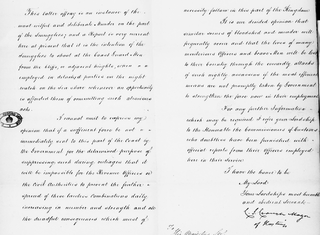 This latter affray is an instance of the
most wilful and deliberate Murder on the part
of the Smugglers; and a Report is very current
here at present that it is the intention of the
Smugglers to shoot at the Coast Guard Men
from the cliffs, or adjacent heights, when
employed in detached parties in the night
watch on the Sea shore wherever an opportunity
is afforded them of committing such
I cannot omit to express my
opinion that if a sufficient force be not
immediately sent to this part of the Coast by
the Government for the determined purpose of
suppressing such daring outrages that it
will be impossible for the Revenue Officers or
the Civil Authorities to prevent the further
spread of these lawless Combinations daily
increasing in number and strength and all
the dreadful consequences which must
necessarily follow in this part of the Kingdom
It is my decided opinion that
similar scenes of bloodshed and murder will
frequently occur and that the lives of many
meritorious Officers and brave Men will be lost
to their Country through the cowardly attacks
of such nightly assassins if the most efficient
means are not promptly taken by Government
to strengthen the force now in their employment.
For any further information
which may be required I refer your Lordship
to the Honorable the Commissioners of Customs
who doubtless have been furnished with
official reports from their Officers employed
here in their Service
I have the honor to be
My Lord
Your Lordships most humble
and obedient Servant
Mayor
of Hastings
To